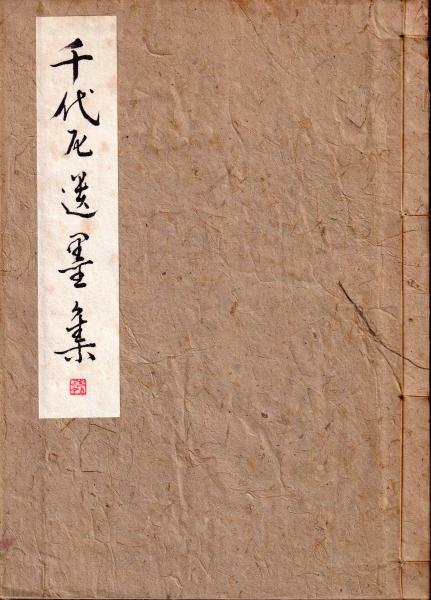 千代尼遺墨集